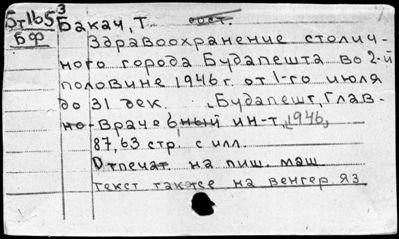 5т165³ Бакач, Т. сост.
БФ
Здравоохранение столич-
ного города Будапешта во 2-й
половине 1946 г. от 1-го июля
до 31 дек. Будапешт, Глав-
но-Врачебный ин-т, 1946,
87,63 стр. с илл.
Отпечат. на пиш. маш
Текст также на венгер. яз